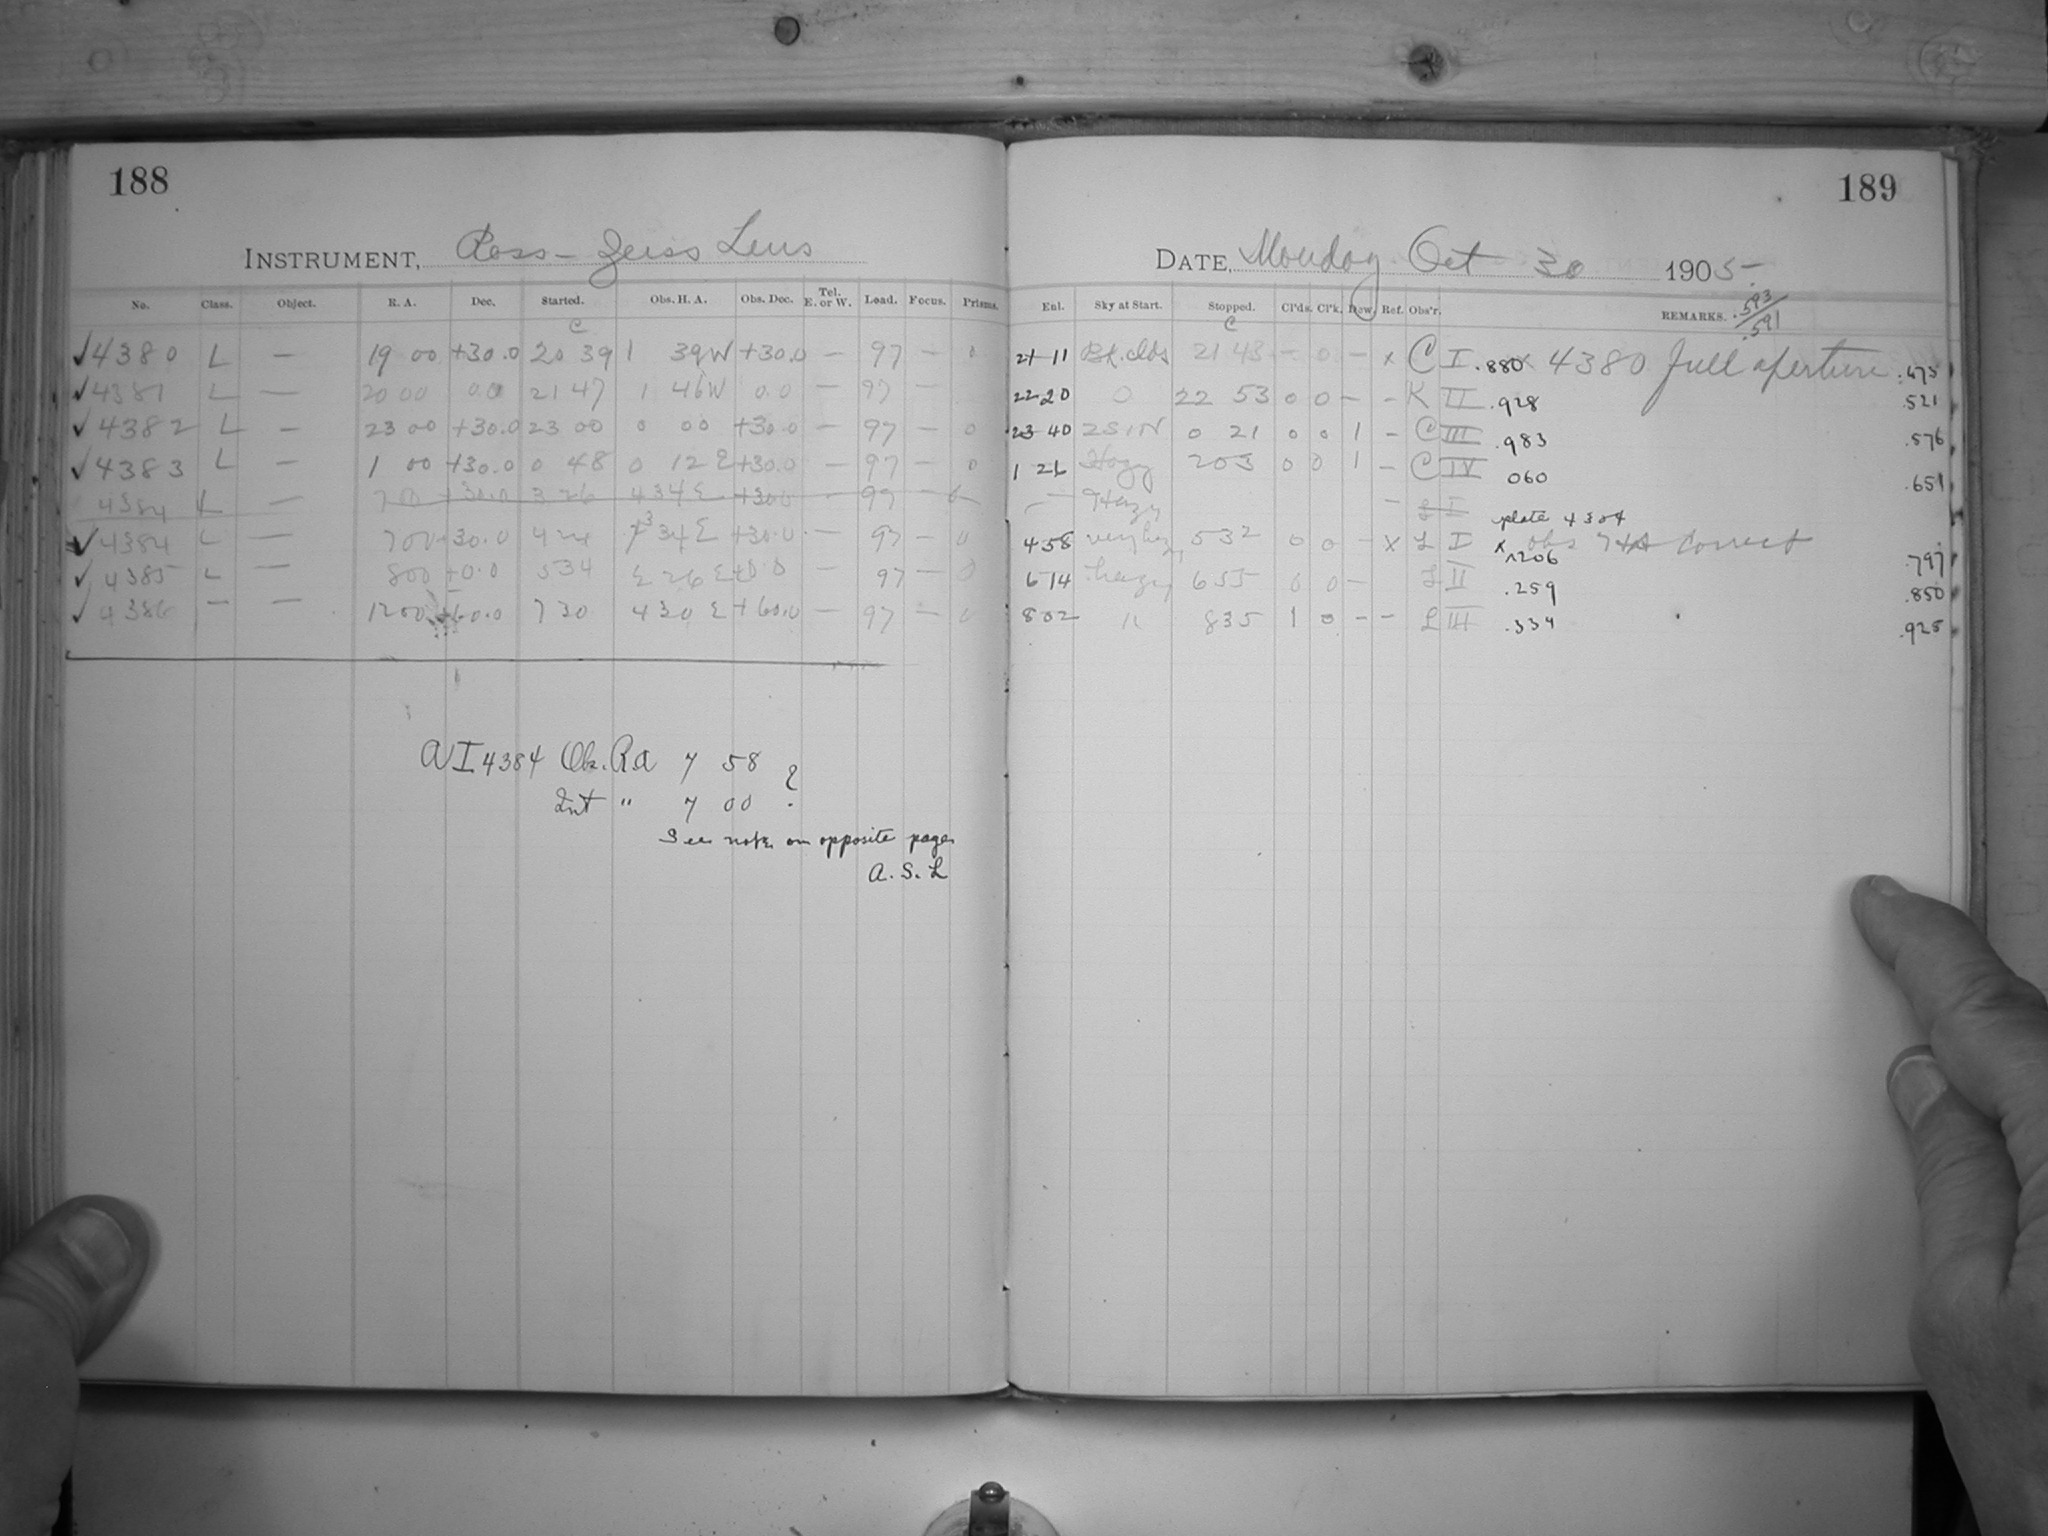 188
INSTRUMENT, Ross-Zeiss Lens
No. Class. Object. R. A. Dec. Started. Obs. H. A. Obs. Dec. Tel. E. or W. Load. Focus. Prisms.
C
✓4380 L — 19 00 +30.0 20 39 1 39W +30.0 — 97 — 0
✓4381 L — 20 00 0.0 21 47 1 46W 0.0 — 97 —
✓4382 L — 23 00 +30.0 23 00 0 00 +30.0 — 97 — 0
✓4383 L — 1 00 +30.0 0 48 0 12 E +30.0 — 97 — 0
4384 L — 7 00 +30.0 3 26 4 34 E +30.0 — 97 —
✓4384 L — 7 00 +30.0 4 24 3 34 E +30.0 — 97 — 0
✓4385 L — 8 00 +0.0 5 34 2 26 E +0.0 97 — 0
✓4386 — — 12 00 +60.0 7 30 4 30 E +60.0 — 97 — 0
4384 Obs. R.A 7 58 ?
Int " 7 00
See note on opposite page
A. S. L
189
DATE, Monday Oct 30 1905
Enl. Sky at Start. Stopped. Cl'ds. Cl'k. Dew. Ref. Obs'r. REMARKS. .593/.591
C
21 11 Bk. clds 21 43 — 0 — x C I .880 x 4380 full aperture .475
22 20 0 22 53 0 0 — — K II .928 .521
23 40 2S1N 0 21 0 0 1 — C III .983 .576
1 26 Hazy 2 03 0 0 1 — C IV 060 .651
— Hazy — L I plate 4384
4 58 very hazy 5 32 0 0 — x L I x obs correct
.206 .797
6 14 hazy 6 55 0 0 — L II .259 .850
8 02 " 8 35 1 0 — — L III .334 .925